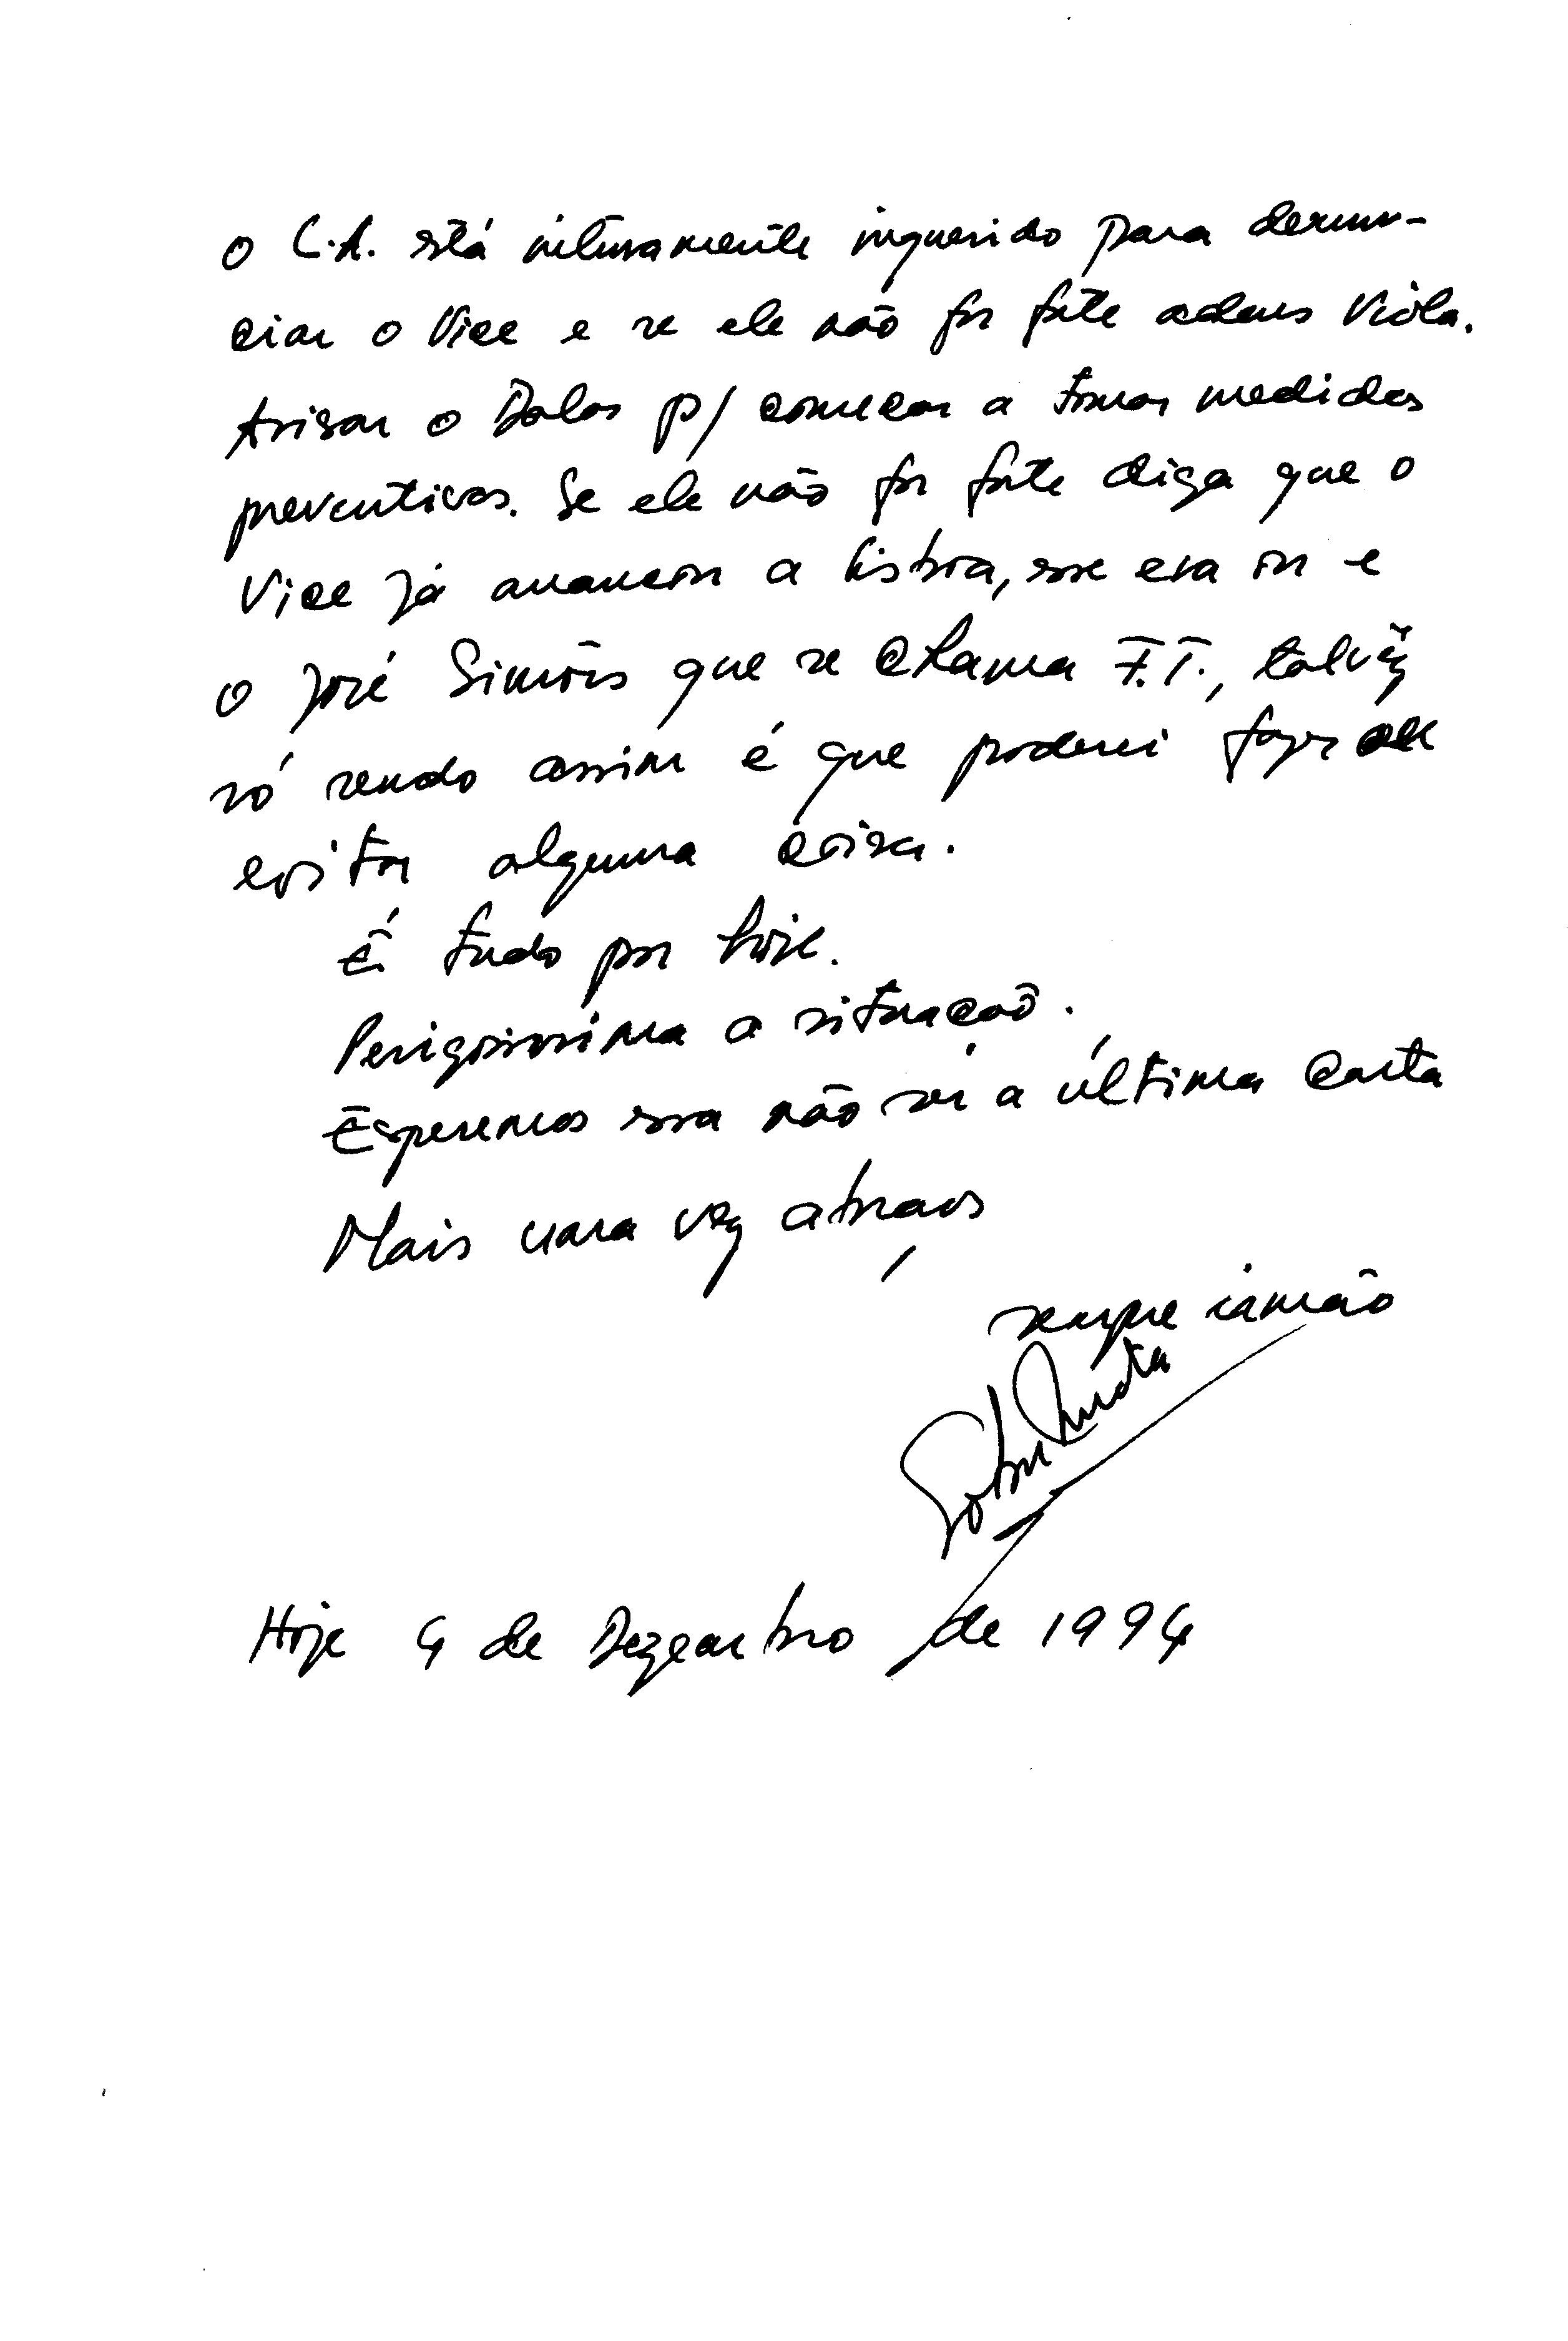 O C.A. está inteiramente inquerido para denun-
ciar o Vice e se ele não for forte adeus Viola.
Avisar o Dalas p/ começar a tomar medidas
preventivas. Se ele não for forte diga que o
Vice já avançou a Lisboa, esse era eu e
o José Simões que se chama F.T., talvêz
só sendo assim é que poderei fazer
evitar alguma coisa.
É tudo por hoje.
Perigosissima a situação.
Esperemos essa não sei a última carta
Mais uma vez abraços
sempre irmão
Hoje 4 de Dezembro de 1994